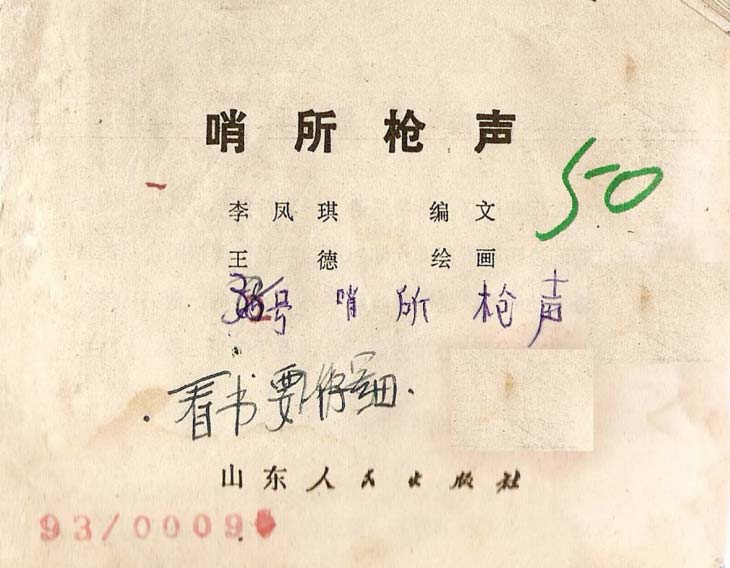 哨所枪声
李凤琪 编文
50
王德 绘画
号 哨所枪声
看书要仔细.
山东人民出版社
93/0009